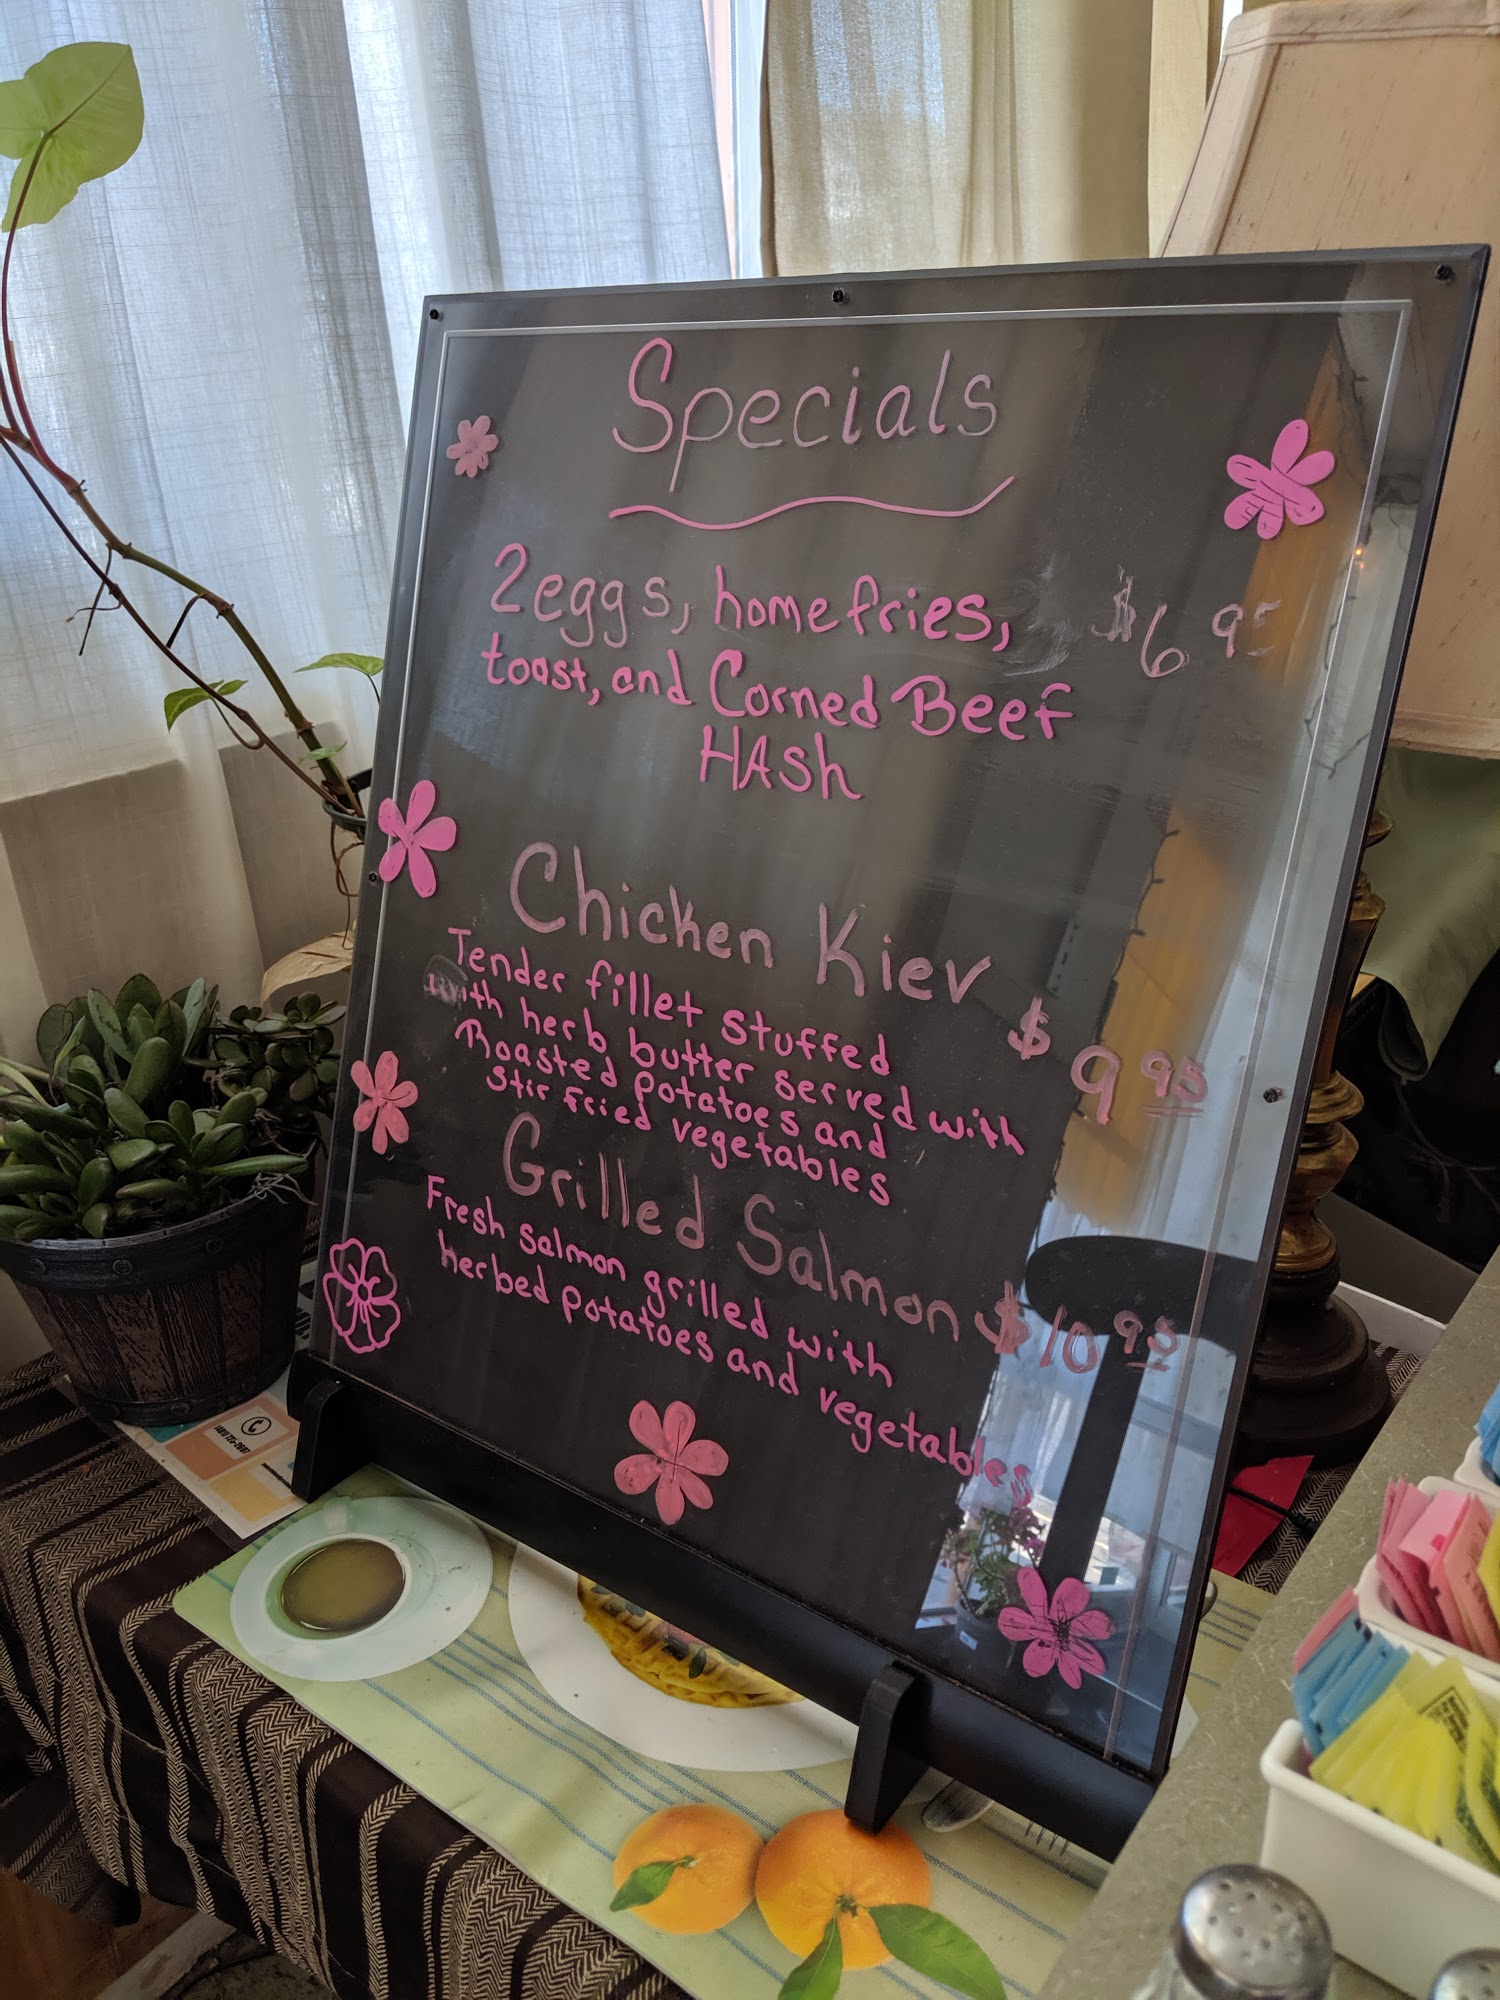 Specials
2 eggs, home fries, $6 95
toast, and Corned Beef
HAsh
Chicken Kiev
Tender fillet stuffed
with herb butter served with
Roasted potatoes and
stir fried vegetables
$9 95
Grilled Salmon $10 95
Fresh salmon grilled with
herbed potatoes and vegetables